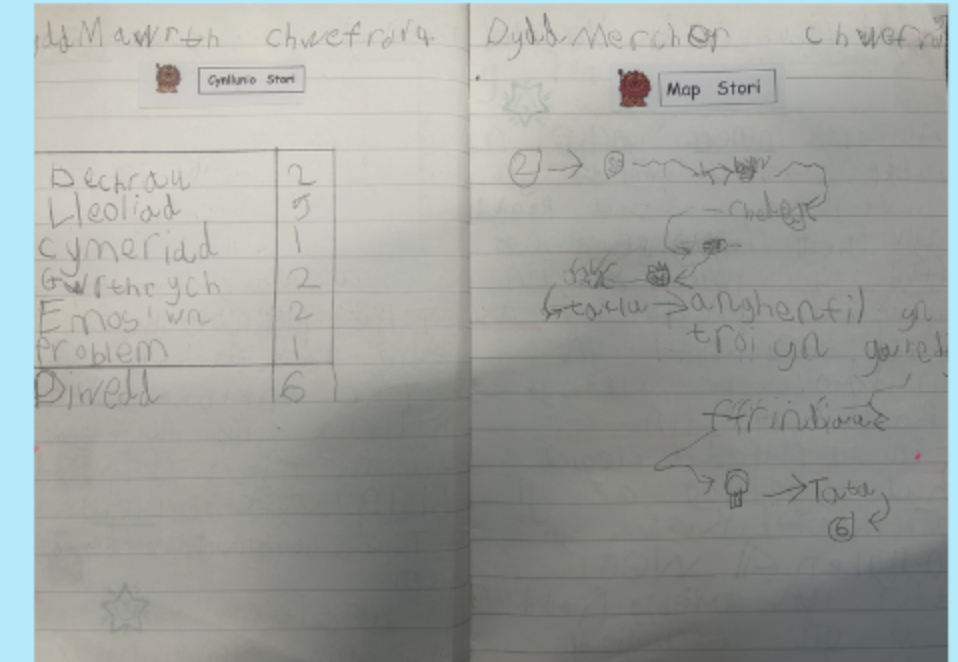 ddMawrth chwefror 4
Cynllunio Stori
Dechrau 2
Lleoliad 5
cymeriad 1
Gwrthrych 2
Emosiwn 2
Problem 1
Diwedd 6
Dydd Mercher chwefr
Map Stori
2
anghenfil yn
troi yn
ffrindiau
Tata
6